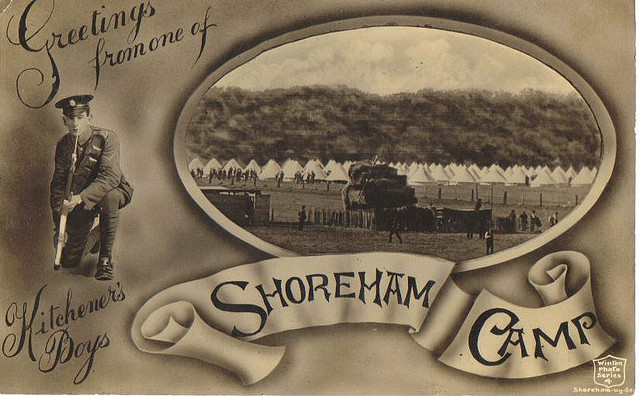 Greetings
from one of
Kitchener's
Boys
SHOREHAM
CAMP
Winton
Photo
Series
4
Shoreham-by-Sea